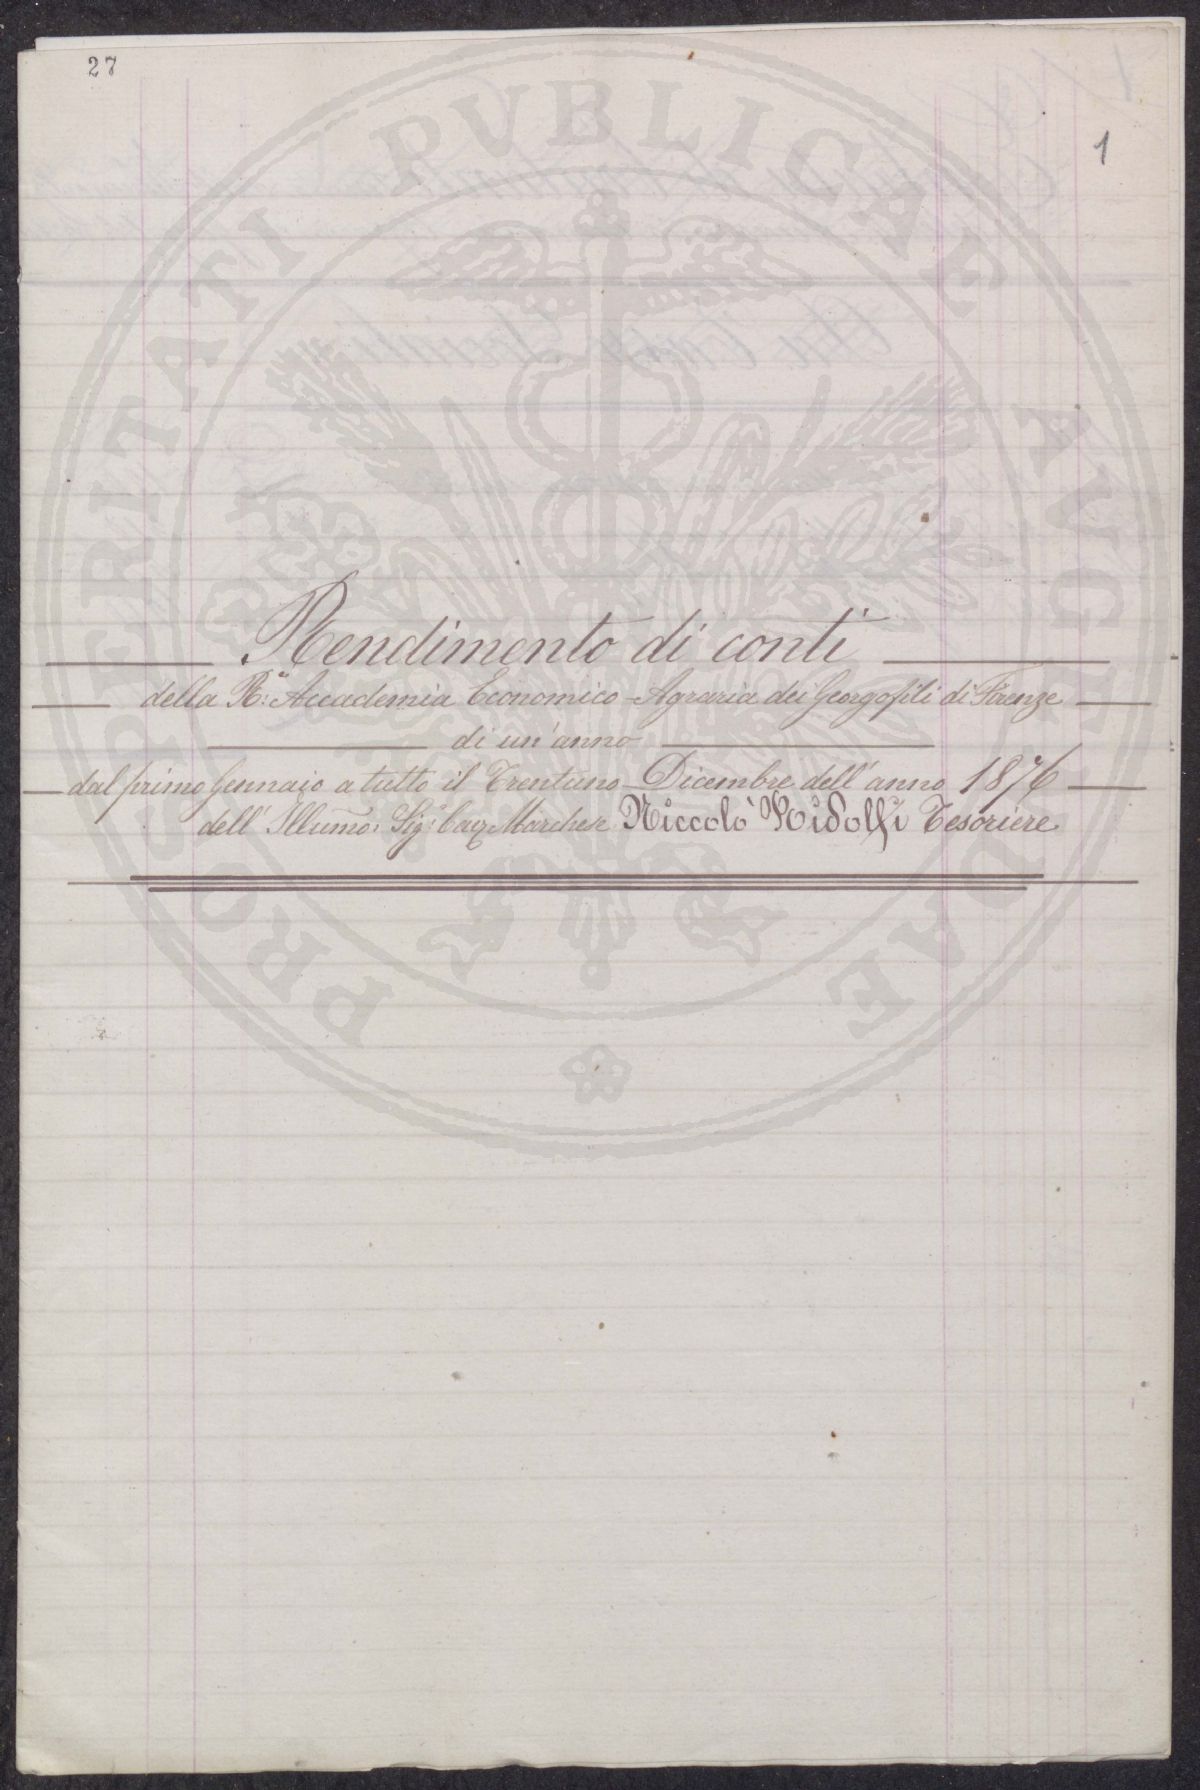 27
1
PROSPERITATI PVBLICAE AVGENDAE
Rendimento di conti
della R:ª Accademia Economico-Agraria dei Georgofili di Firenze
di un'anno
dal primo Gennaio a tutto il Trentuno Dicembre dell'anno 1876
dell' Illumo: Sig:r Cav Marchese Niccolò Ridolfi Tesoriere